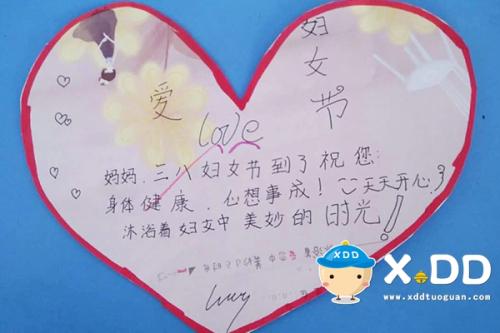 妇女节
爱
love
妈妈，三八妇女节到了祝您：
身体健康，心想事成！天天开心
沐浴着妇女中美妙的时光！
Lucy
XDD
X.DD
www.xddtuoguan.com